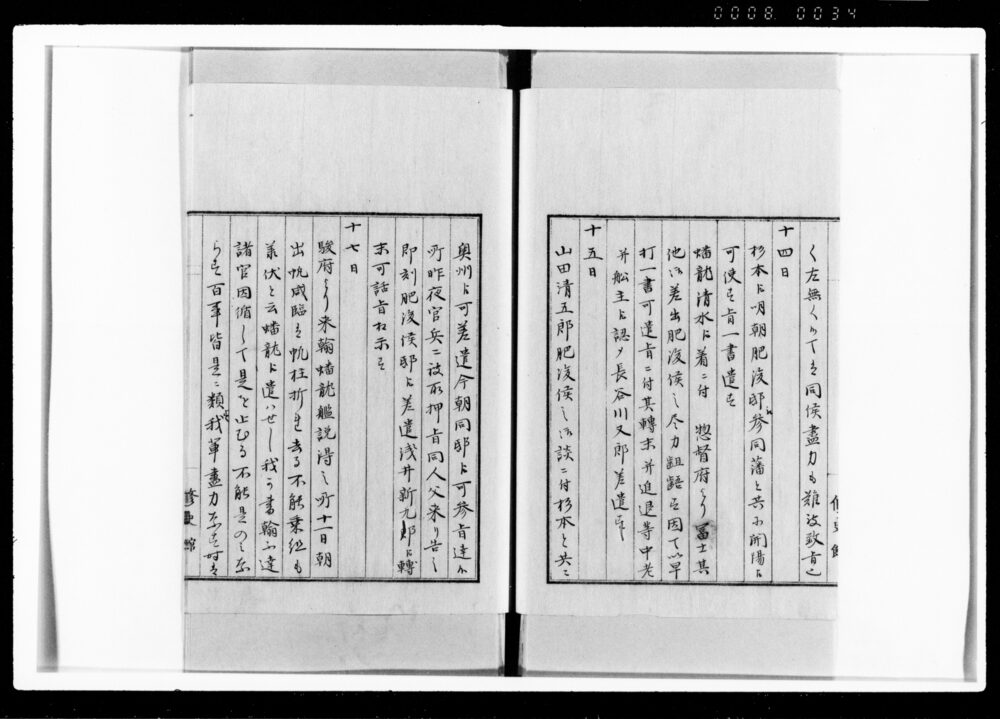 0008 0034
く左無くハてハ同侯盡力も難被致旨也
十四日
杉本に明朝肥後邸参同藩と共ニ開陽に
可使之旨一書遣之
蟠龍清水に着ニ付 惣督府より冨士其
他江差出肥後侯之尽力齟齬ス因て以早
打一書可遣旨ニ付其轉末并進退等中老
并舩主に認メ長谷川又郎差遣
十五日
山田清五郎肥後侯之御談ニ付杉本と共ニ
奥州に可差遣今朝同邸に可参旨達
所昨夜官兵ニ被取押旨同人父来り告之
即刻肥後侯邸に差遣浅井新九郎に轉
末可話旨相示ス
十七日
駿府より来翰蟠龍艦説得之所十一日朝
出帆咸臨は帆柱折れ去る不能乗組も
承伏と云蟠龍に遣ハせし我か書翰不達
諸官因循して是を止むる不能是のミな
らす百事皆是ニ類我輩盡力
修史館